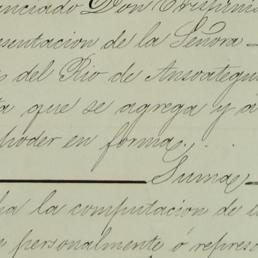 enciado Don Crispini
esentacion de la Señora
s del Rio de Ansoategu
ta que se agrega y a
poder en forma,
Suma
la computacion de
personalmente ó represe